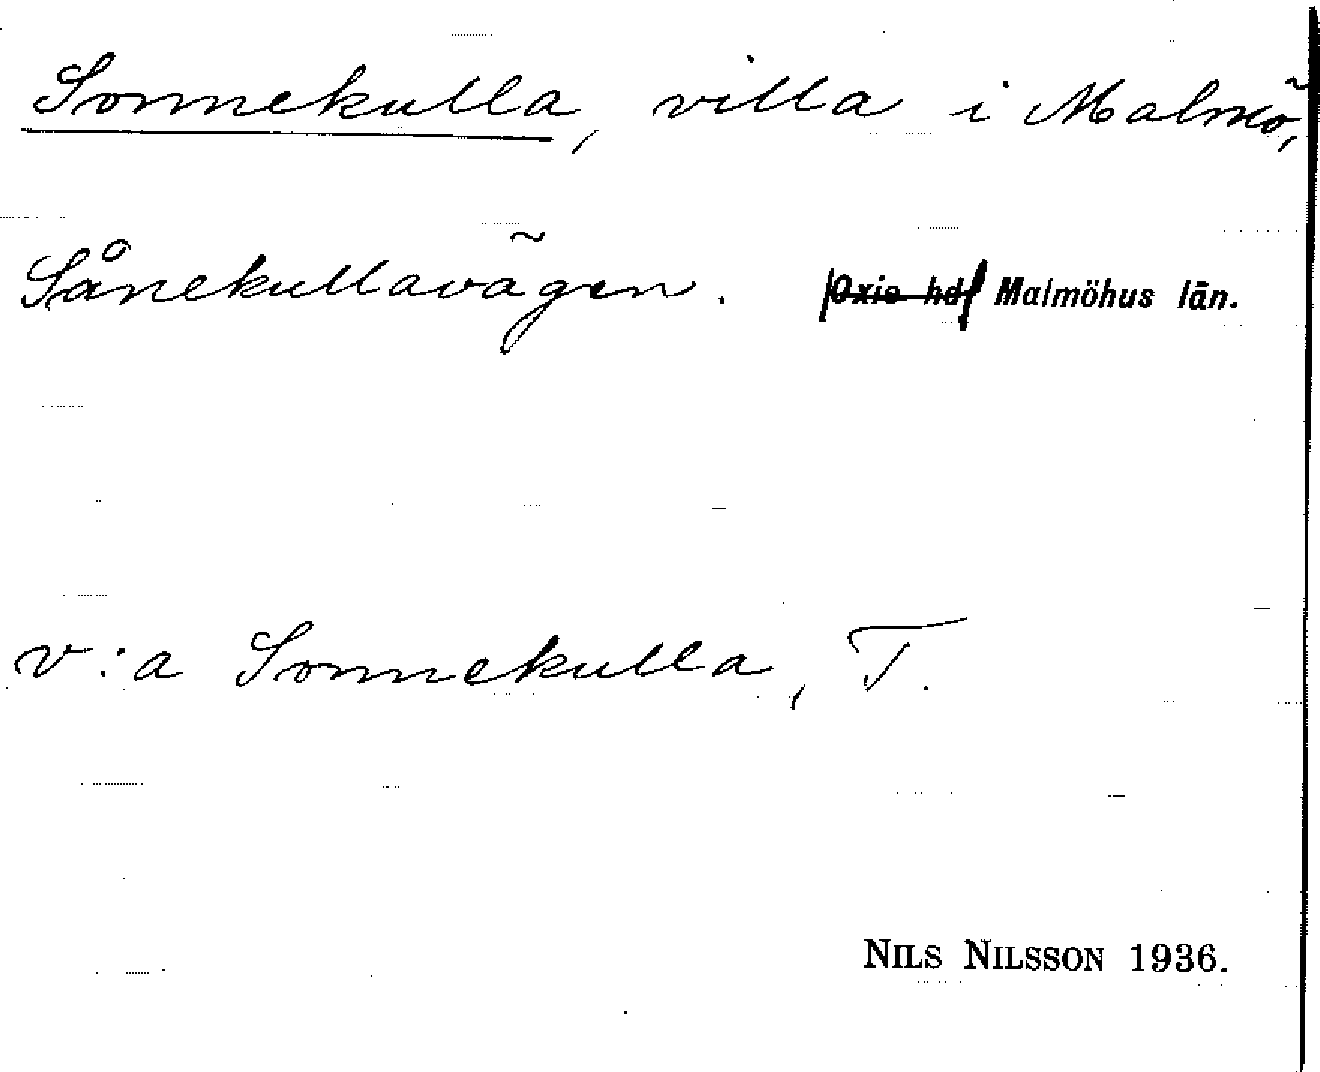 Sonnekulla, villa i Malmö,
Sånekullavägen. Oxie hd Malmöhus län.
v:a Sonnekulla, T.
NILS NILSSON 1936.